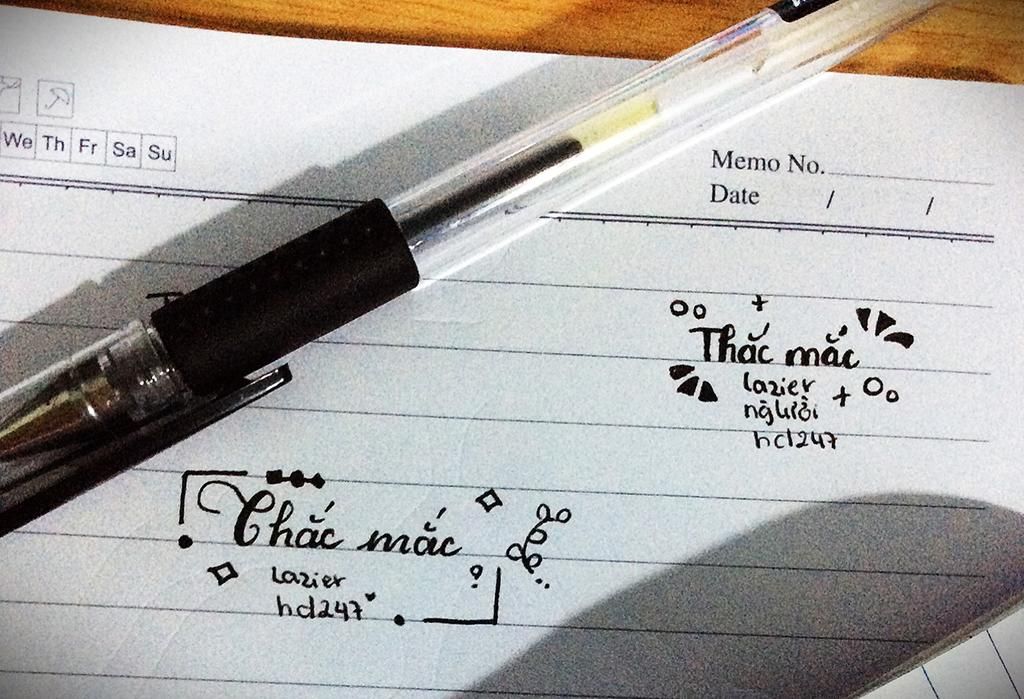 We Th Fr Sa Su
Memo No.
Date / /
Thắc mắc
lazier
người
hd247
Thắc mắc
lazier
?
hd247